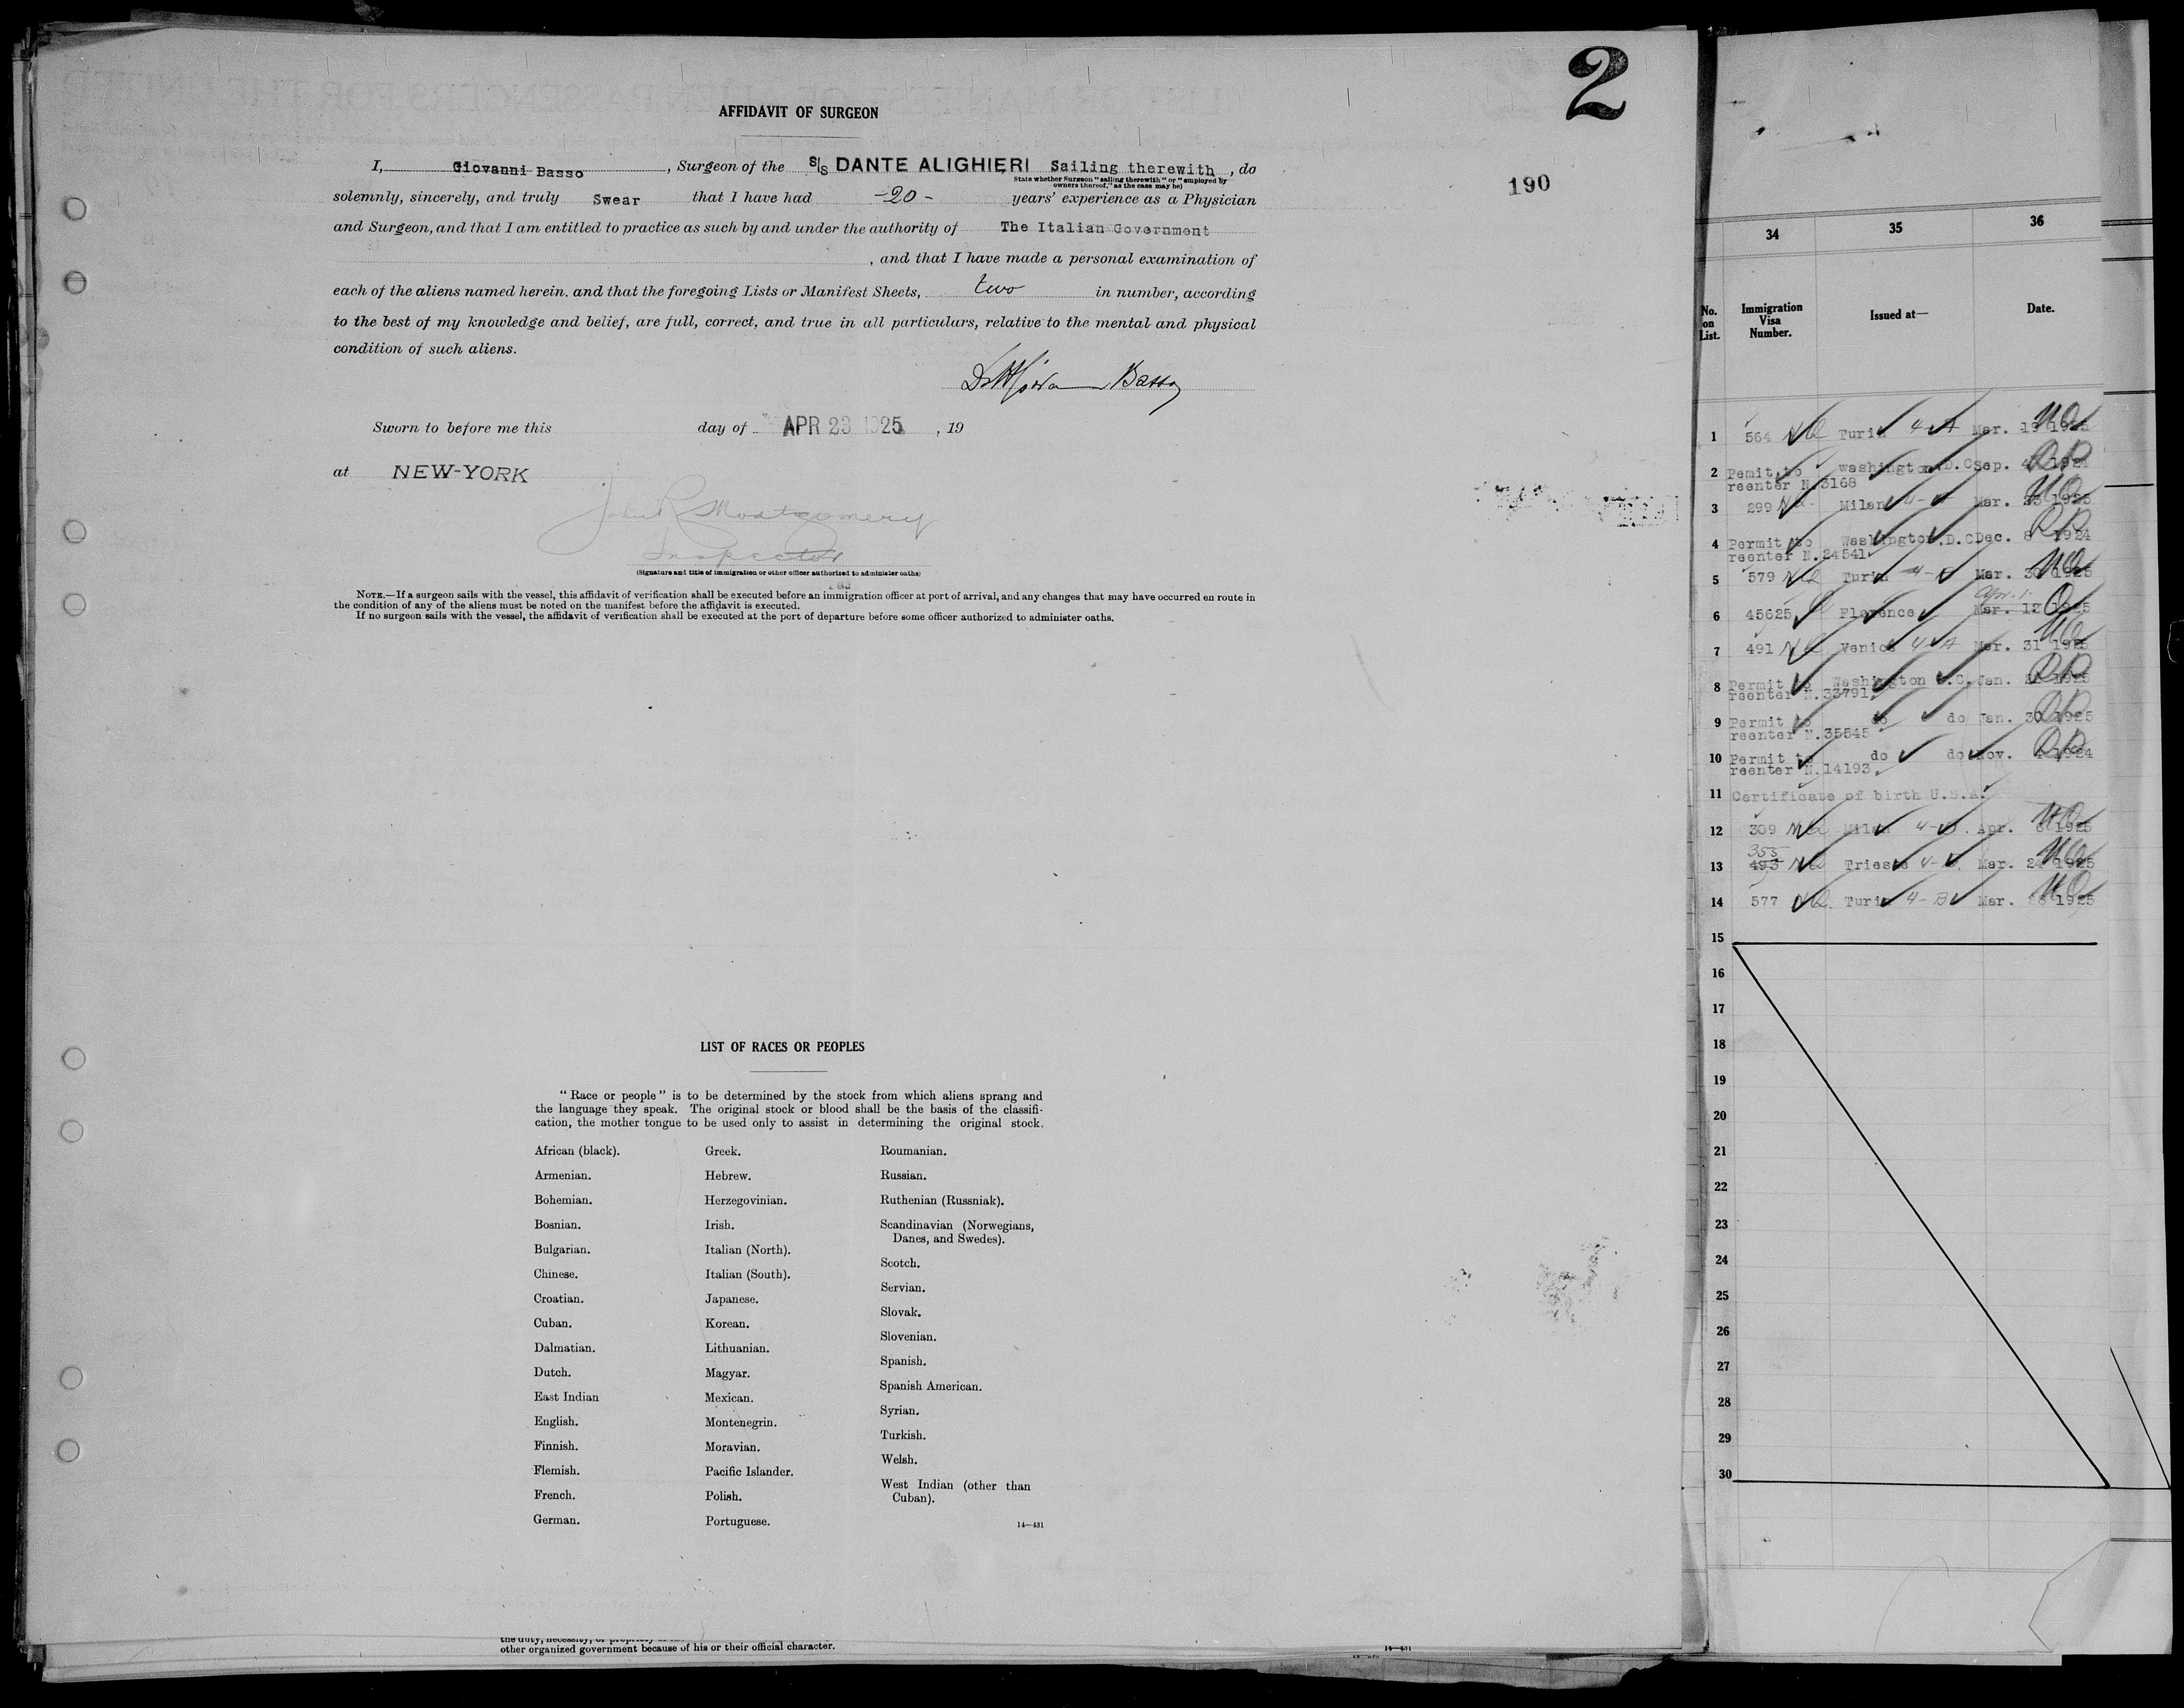 2
AFFIDAVIT OF SURGEON
I, Giovanni Basso, Surgeon of the S/S DANTE ALIGHIERI Sailing therewith, do
State whether Surgeon "sailing therewith" or "employed by
owners thereof," as the case may be)
190
solemnly, sincerely, and truly Swear that I have had -20- years' experience as a Physician
and Surgeon, and that I am entitled to practice as such by and under the authority of The Italian Government
, and that I have made a personal examination of
each of the aliens named herein. and that the foregoing Lists or Manifest Sheets, two in number, according
to the best of my knowledge and belief, are full, correct, and true in all particulars, relative to the mental and physical
condition of such aliens.
Basso
Sworn to before me this day of APR 23 1925, 19
at NEW-YORK
John R Montgomery
Inspector
(Signature and title of immigration or other officer authorized to administer oaths)
NOTE.—If a surgeon sails with the vessel, this affidavit of verification shall be executed before an immigration officer at port of arrival, and any changes that may have occurred en route in
the condition of any of the aliens must be noted on the manifest before the affidavit is executed.
If no surgeon sails with the vessel, the affidavit of verification shall be executed at the port of departure before some officer authorized to administer oaths.
LIST OF RACES OR PEOPLES
"Race or people" is to be determined by the stock from which aliens sprang and
the language they speak. The original stock or blood shall be the basis of the classifi-
cation, the mother tongue to be used only to assist in determining the original stock.
African (black).
Armenian.
Bohemian.
Bosnian.
Bulgarian.
Chinese.
Croatian.
Cuban.
Dalmatian.
Dutch.
East Indian
English.
Finnish.
Flemish.
French.
German.
Greek.
Hebrew.
Herzegovinian.
Irish.
Italian (North).
Italian (South).
Japanese.
Korean.
Lithuanian.
Magyar.
Mexican.
Montenegrin.
Moravian.
Pacific Islander.
Polish.
Portuguese.
Roumanian.
Russian.
Ruthenian (Russniak).
Scandinavian (Norwegians,
Danes, and Swedes).
Scotch.
Servian.
Slovak.
Slovenian.
Spanish.
Spanish American.
Syrian.
Turkish.
Welsh.
West Indian (other than
Cuban).
14—431
other organized government because of his or their official character.
14—431
34 35 36
No. on List. Immigration Visa Number. Issued at— Date.
1 564 NQ Turin 4 A Mar. 19 1925
2 Pemit to Washington D.C Sep. 1924
reenter N.3168
3 299 NQ Milan 4- Mar. 1925
4 Permit to Washington.D.C Dec. 8 1924
reenter N.24541
5 579 NQ Turin 4- Mar. 30 1925
Apr. 1
6 45625 Florence Mar. 12 1925
7 491 NQ Venice 4 A Mar. 31 1925
8 Permit to Washington D.C. Jan. 1925
reenter N.33791
9 Permit to do do Jan. 30 1925
reenter N.35545
10 Permit to do do Nov. 1924
reenter N.14193
11 Certificate of birth U.S.A.
12 309 NQ Milan 4- Apr. 1925
355
13 493 NQ Trieste 4- Mar. 24 1925
14 577 NQ Turin 4-B Mar. 1925
15
16
17
18
19
20
21
22
23
24
25
26
27
28
29
30